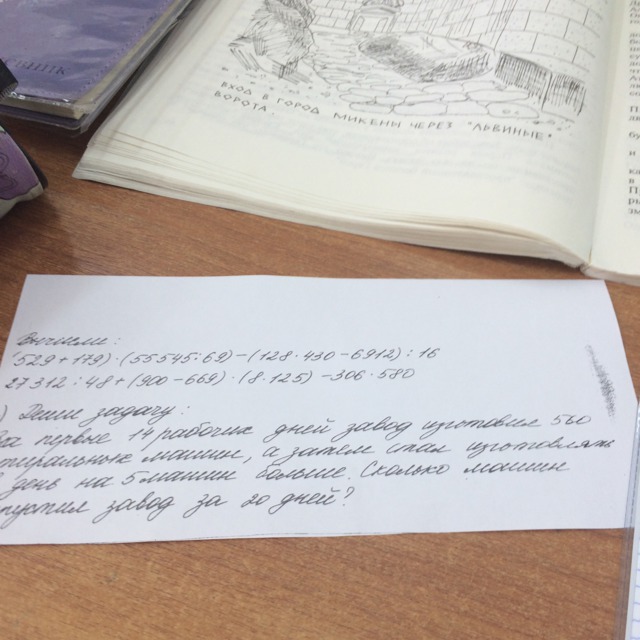 ВХОД В ГОРОД МИКЕНЫ ЧЕРЕЗ "ЛЬВИНЫЕ"
ВОРОТА.
Вычисли:
529+179)·(55545:69)-(128·430-6912):16
27312:48+(900-669)·(8·125)-306·580
) Реши задачу:
За первые 14 рабочих дней завод изготовил 560
тиральных машин, а затем стал изготовлять
в день на 5 машин больше. Сколько машин
пустил завод за 20 дней?